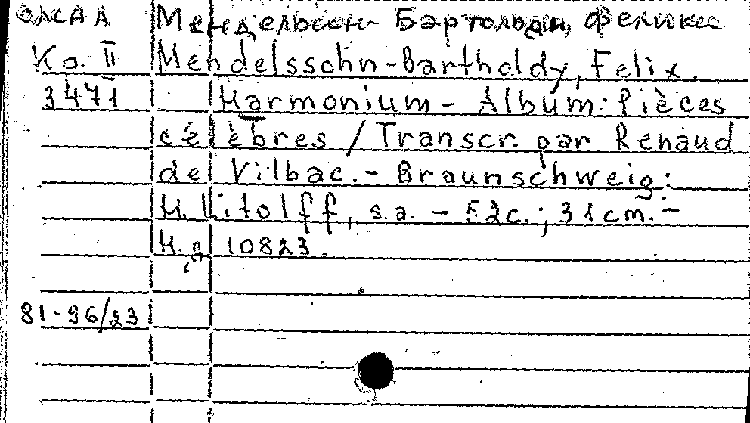 ОМАЛ Мендельсон-Бартольди, Феликс
Ко. II Mendelssohn-Bartholdy, Felix.
3471 Harmonium-Album: Pièces
célèbres / Transcr. par Renaud
de Vilbac. - Braunschweig:
H. Litolff, s.a. - 52c.; 31cm. -
Н.д. 10823.
81-96/23